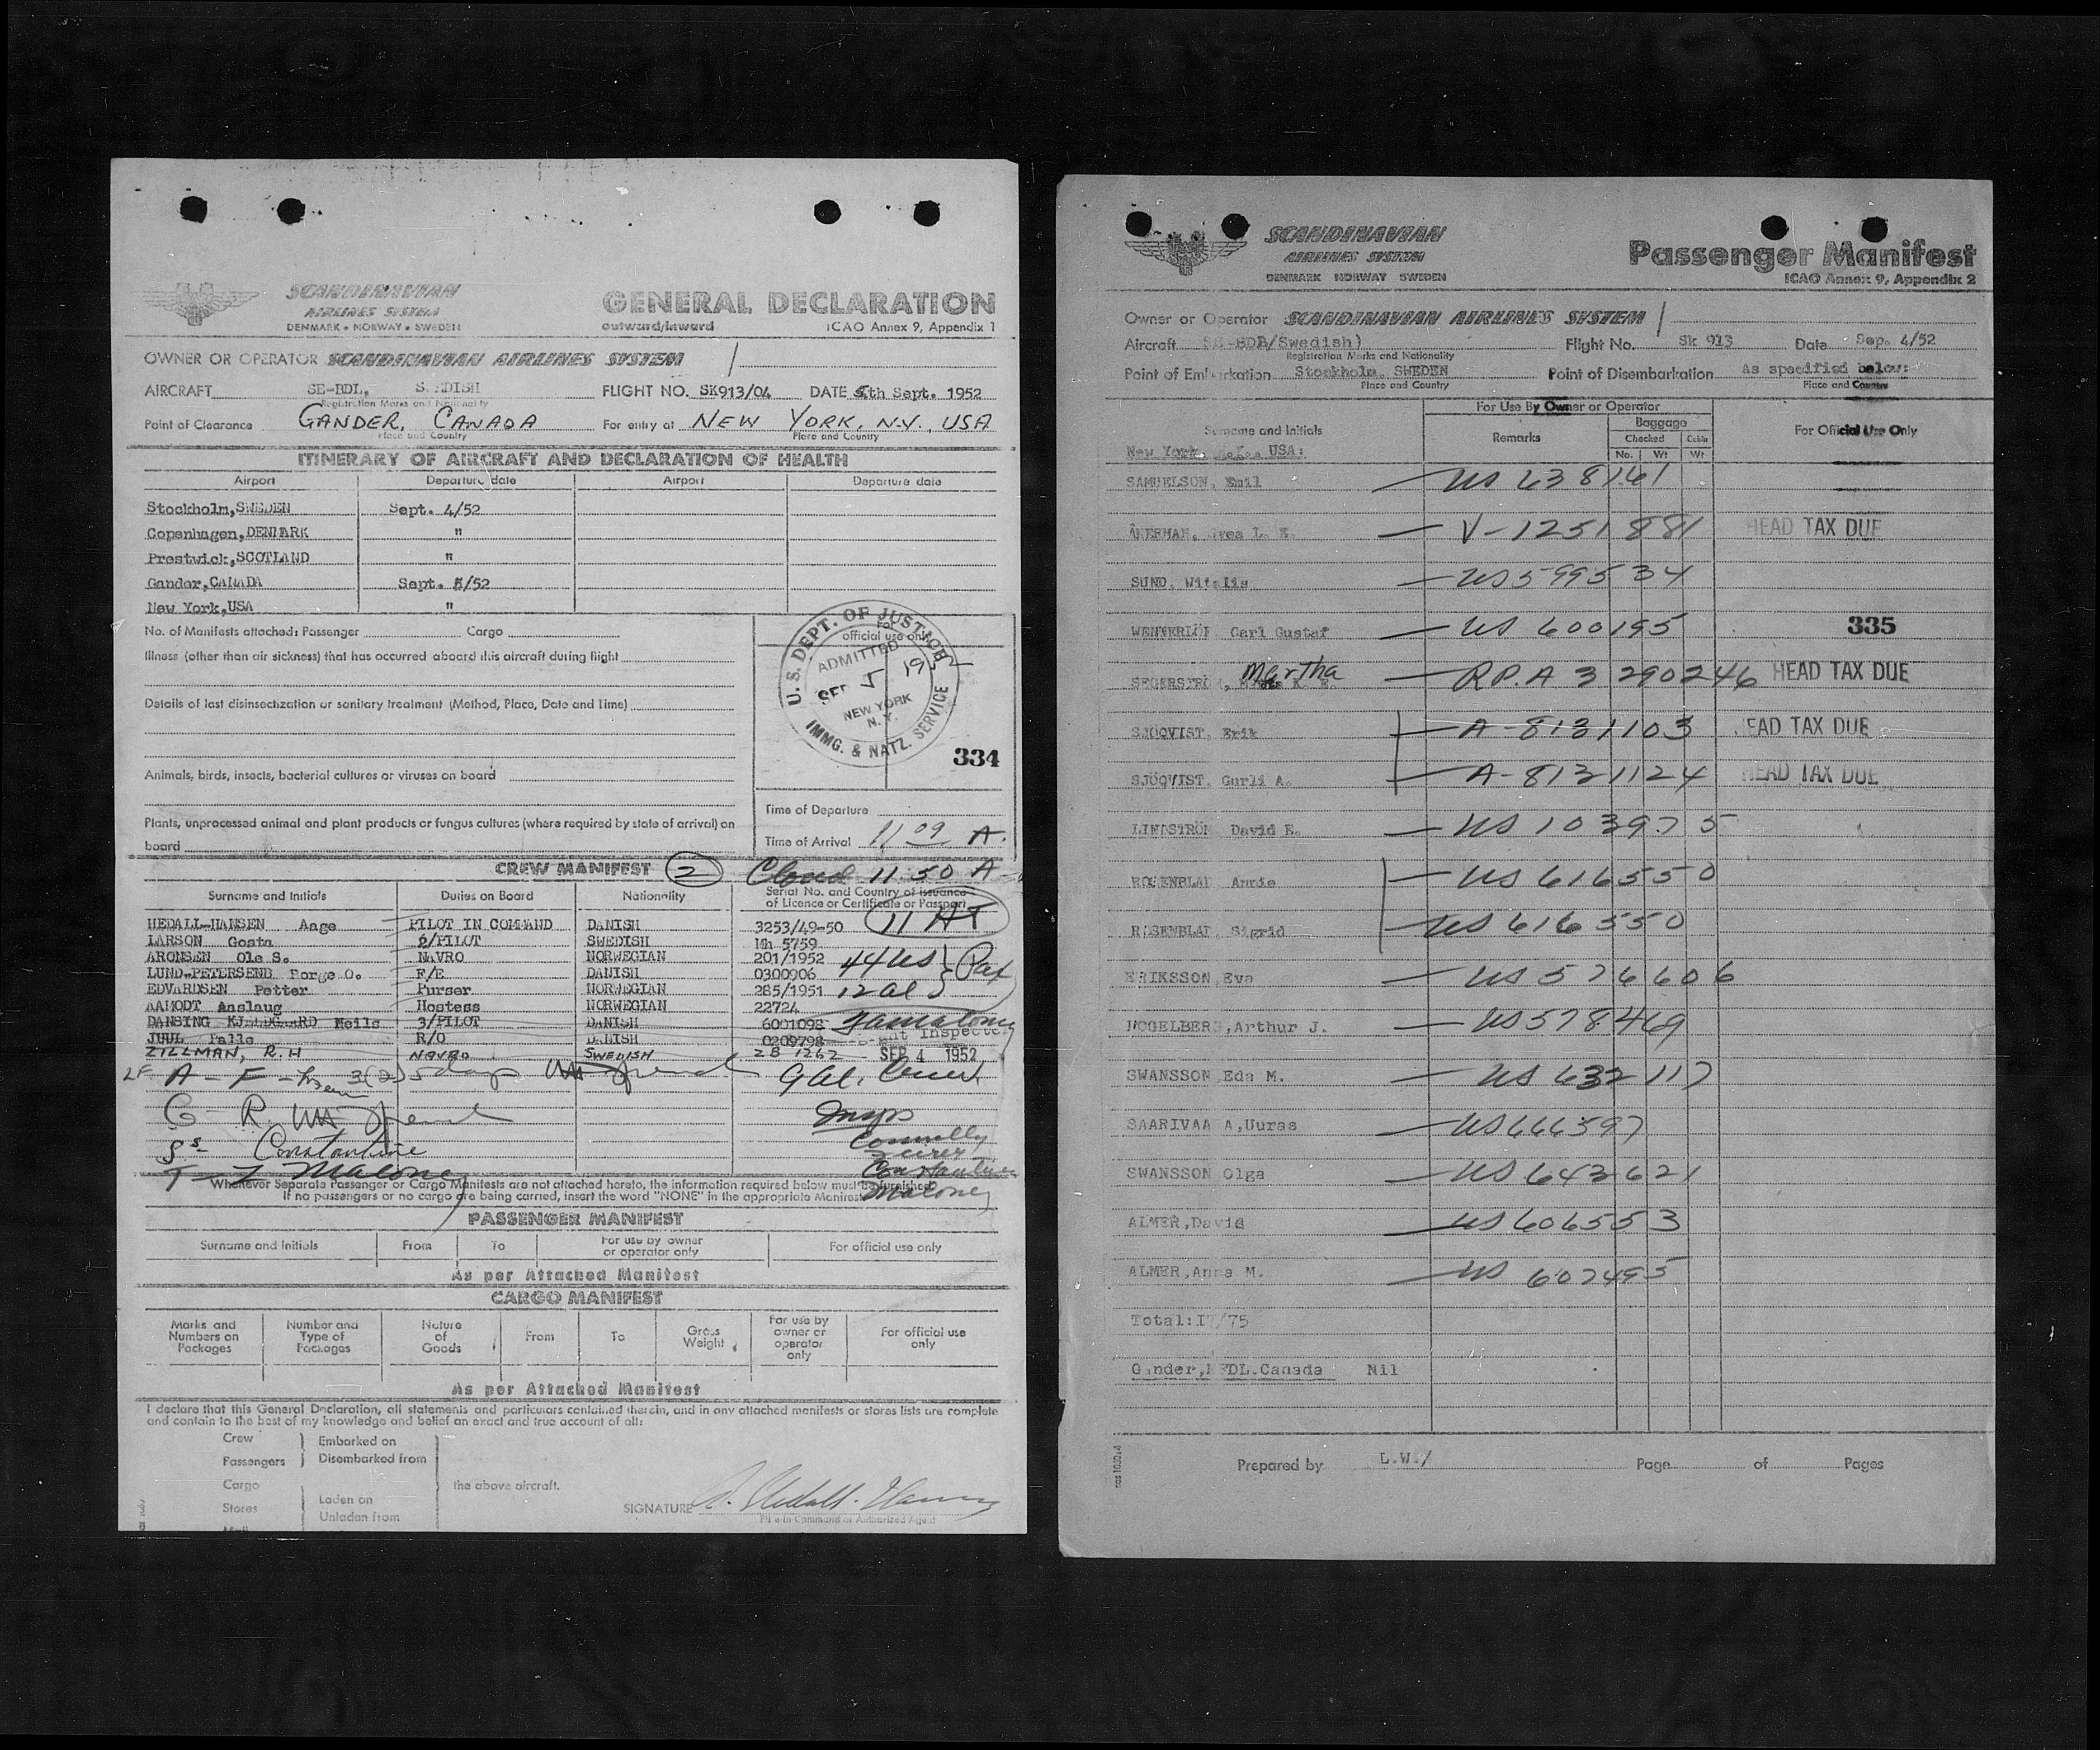 SCANDINAVIAN
AIRLINES SYSTEM
DENMARK • NORWAY • SWEDEN
GENERAL DECLARATION
outward/inward
ICAO Annex 9, Appendix 1
OWNER OR OPERATOR SCANDINAVIAN AIRLINES SYSTEM /
AIRCRAFT SE-BDL, S EDISH FLIGHT NO. SK913/04 DATE 5th Sept. 1952
Registration Marks and Nationality
Point of Clearance GANDER, CANADA For entry at NEW YORK, N.Y., USA
Place and Country Place and Country
ITINERARY OF AIRCRAFT AND DECLARATION OF HEALTH
Airport Departure date Airport Departure date
Stockholm,SWEDEN Sept. 4/52
Copenhagen,DENMARK "
Prestwick,SCOTLAND "
Gander,CANADA Sept. 5/52
New York,USA "
No. of Manifests attached: Passenger Cargo
For official use only
Illness (other than air sickness) that has occurred aboard this aircraft during flight
Details of last disinsectization or sanitary treatment (Method, Place, Date and Time)
U. S. DEPT. OF JUSTICE
ADMITTED
SEP 5 1952
NEW YORK
N. Y.
IMMG. & NATZ. SERVICE
334
Animals, birds, insects, bacterial cultures or viruses on board
Plants, unprocessed animal and plant products or fungus cultures (where required by state of arrival) on
board
Time of Departure
Time of Arrival 11 09 A.
CREW MANIFEST 2 11.50 A
Surname and Initials Duties on Board Nationality Serial No. and Country of Issuance
of Licence or Certificate or Passport
HEDALL-HANSEN Aage PILOT IN COMMAND DANISH 3253/49-50
LARSON Gosta 2/PILOT SWEDISH Mh 5759
ARONSEN Ole S. NAVRO NORWEGIAN 201/1952
LUND-PETERSEND Borge O. F/E DANISH 0300906
EDVARDSEN Petter Purser NORWEGIAN 285/1951
AAMODT Anslaug Hostess NORWEGIAN 22724
DANSING KJELDGAARD Neils 3/PILOT DANISH 6001098
JUUL Palle R/O DANISH 0209798
ZILLMAN, R.H NAVRO SWEDISH 28 1262
11 AT
44 US
12 al
Pax
SEP 4 1952
Insps
Connelly
Constantine
Maloney
Constantine
Maloney
Whenever Separate Passenger or Cargo Manifests are not attached hereto, the information required below must be furnished.
If no passengers or no cargo are being carried, insert the word "NONE" in the appropriate Manifest
PASSENGER MANIFEST
Surname and Initials From To For use by owner
or operator only For official use only
As per Attached Manifest
CARGO MANIFEST
Marks and
Numbers on
Packages Number and
Type of
Packages Nature
of
Goods From To Gross
Weight For use by
owner or
operator
only For official use
only
As per Attached Manifest
I declare that this General Declaration, all statements and particulars contained therein, and in any attached manifests or stores lists are complete
and contain to the best of my knowledge and belief an exact and true account of all:
Crew Embarked on
Passengers Disembarked from
Cargo the above aircraft.
Stores Laden on
Unladen from
Mail
SIGNATURE
Pilot-in-Command or Authorized Agent
SCANDINAVIAN
AIRLINES SYSTEM
DENMARK NORWAY SWEDEN
Passenger Manifest
ICAO Annex 9, Appendix 2
Owner or Operator SCANDINAVIAN AIRLINES SYSTEM /
Aircraft SE-BDL/Swedish) Flight No. SK 913 Date Sep. 4/52
Registration Marks and Nationality
Point of Embarkation Stockholm, SWEDEN Point of Disembarkation As specified below:
Place and Country Place and Country
For Use By Owner or Operator
Surname and Initials Remarks Baggage
Checked Cabin
No. Wt Wt
For Official Use Only
New York, USA:
SAMUELSON, Emil US 638161
ÅKERMAN, L. E. V-1251881 HEAD TAX DUE
SUND, Witalis US 599534
WENNERLÖF Carl Gustaf US 600195 335
SEGERSTRÖM, Martha RP.A 3 290246 HEAD TAX DUE
SJÖQVIST, Erik A-8131103 HEAD TAX DUE
SJÖQVIST, Gurli A. A-8131124 HEAD TAX DUE
LINDSTRÖM David E. US 1039275
ROSENBLAD Annie US 616550
ROSENBLAD, Sigrid US 616550
ERIKSSON,Eva US 576606
HOGELBERG,Arthur J. US 578469
SWANSSON,Eda M. US 632117
SAARIVAA A,Uuras US 666597
SWANSSON Olga US 643621
ALMER,David US 606553
ALMER,Anna M. US 607495
Total:17/75
Gander,NFDL.Canada Nil
Prepared by L.W./ Page of Pages